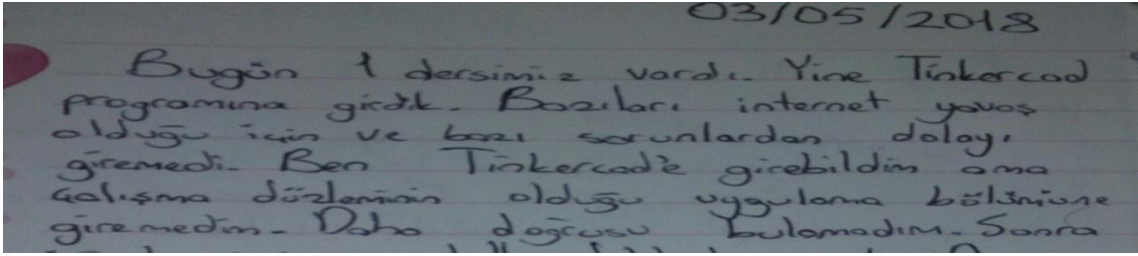 03/05/2018
Bugün 1 dersimiz vardı. Yine Tinkercad
programına girdik. Bazıları internet yavaş
olduğu için ve bazı sorunlardan dolayı
giremedi. Ben Tinkercad'e girebildim ama
çalışma düzleminin olduğu uygulama bölümüne
giremedim. Daha doğrusu bulamadım. Sonra